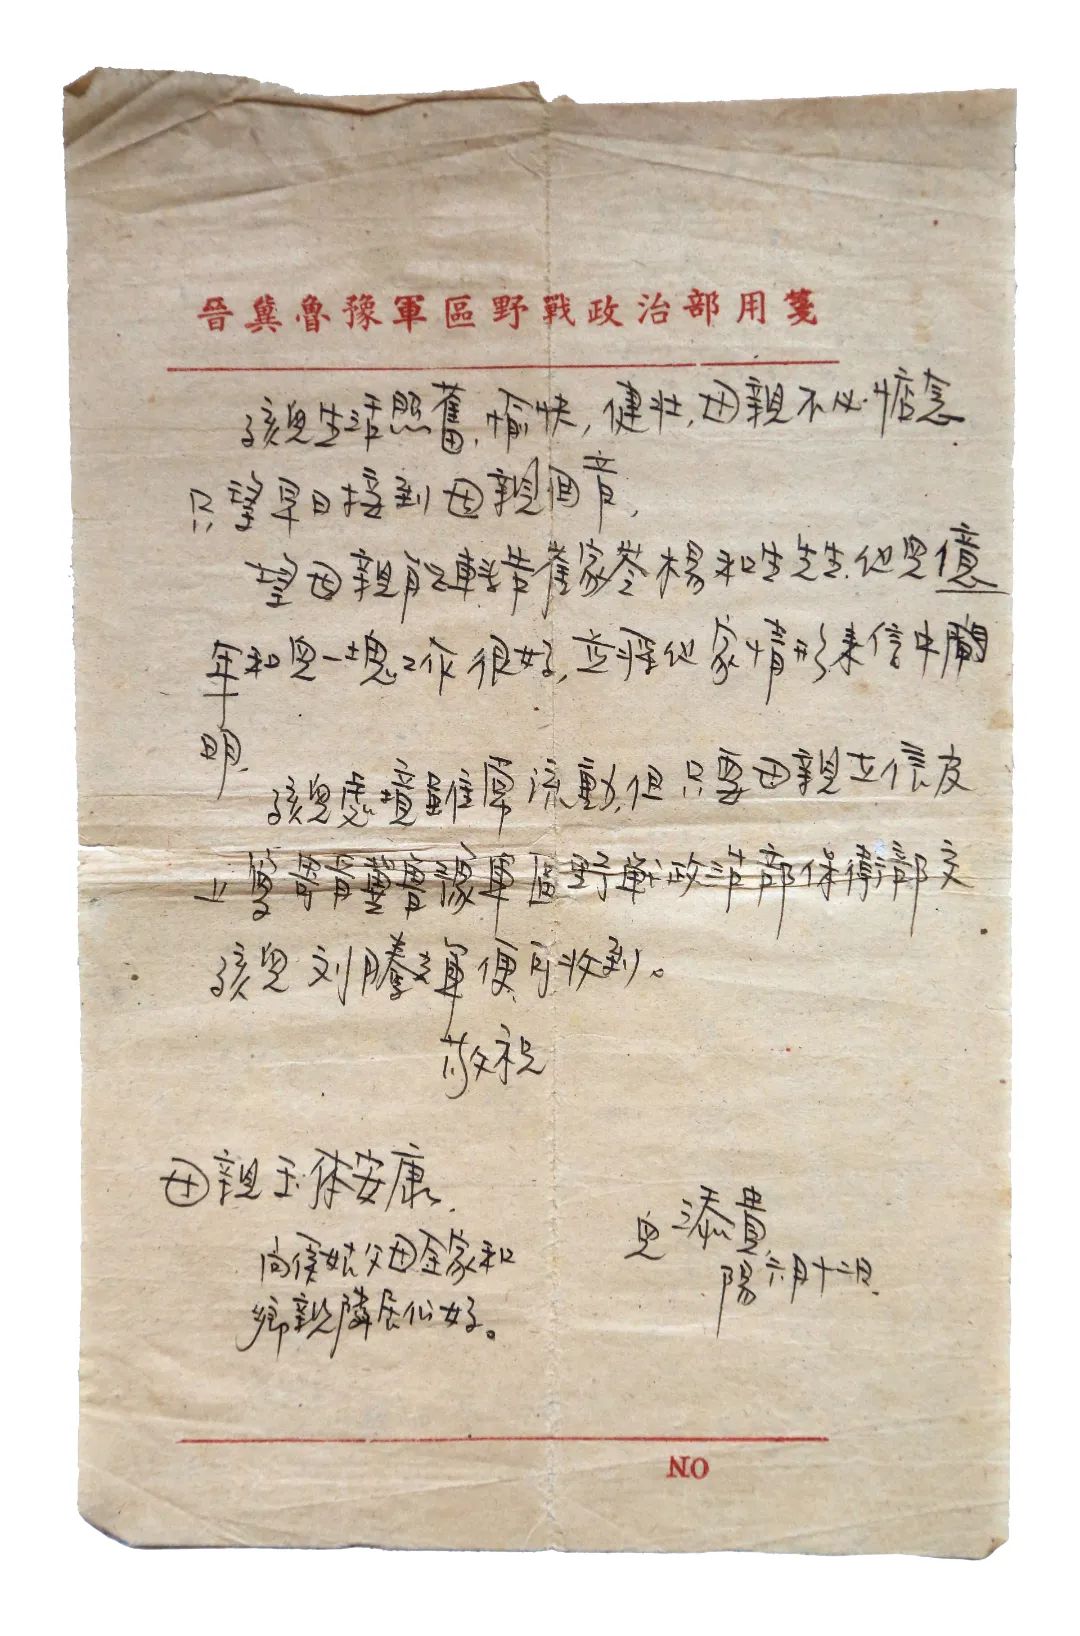 晉冀魯豫軍區野戰政治部用箋
孩兒生活照舊，愉快，健壯，母親不必惦念
只望早日接到母親回音，
望母親能轉告崔家岺楊和生先生，他兒億
年和兒一塊工作很好，並將他家情形來信中闡
明，
孩兒處境雖常流動，但只要母親在信皮
上寫寄晉冀魯豫軍區野戰政治部保衛部交
孩兒刘騰軍便可收到。
敬祝
母親玉体安康，
向侯姑父母全家和
鄉親隣居们好。
兒添貴
陽六月十二日.
NO